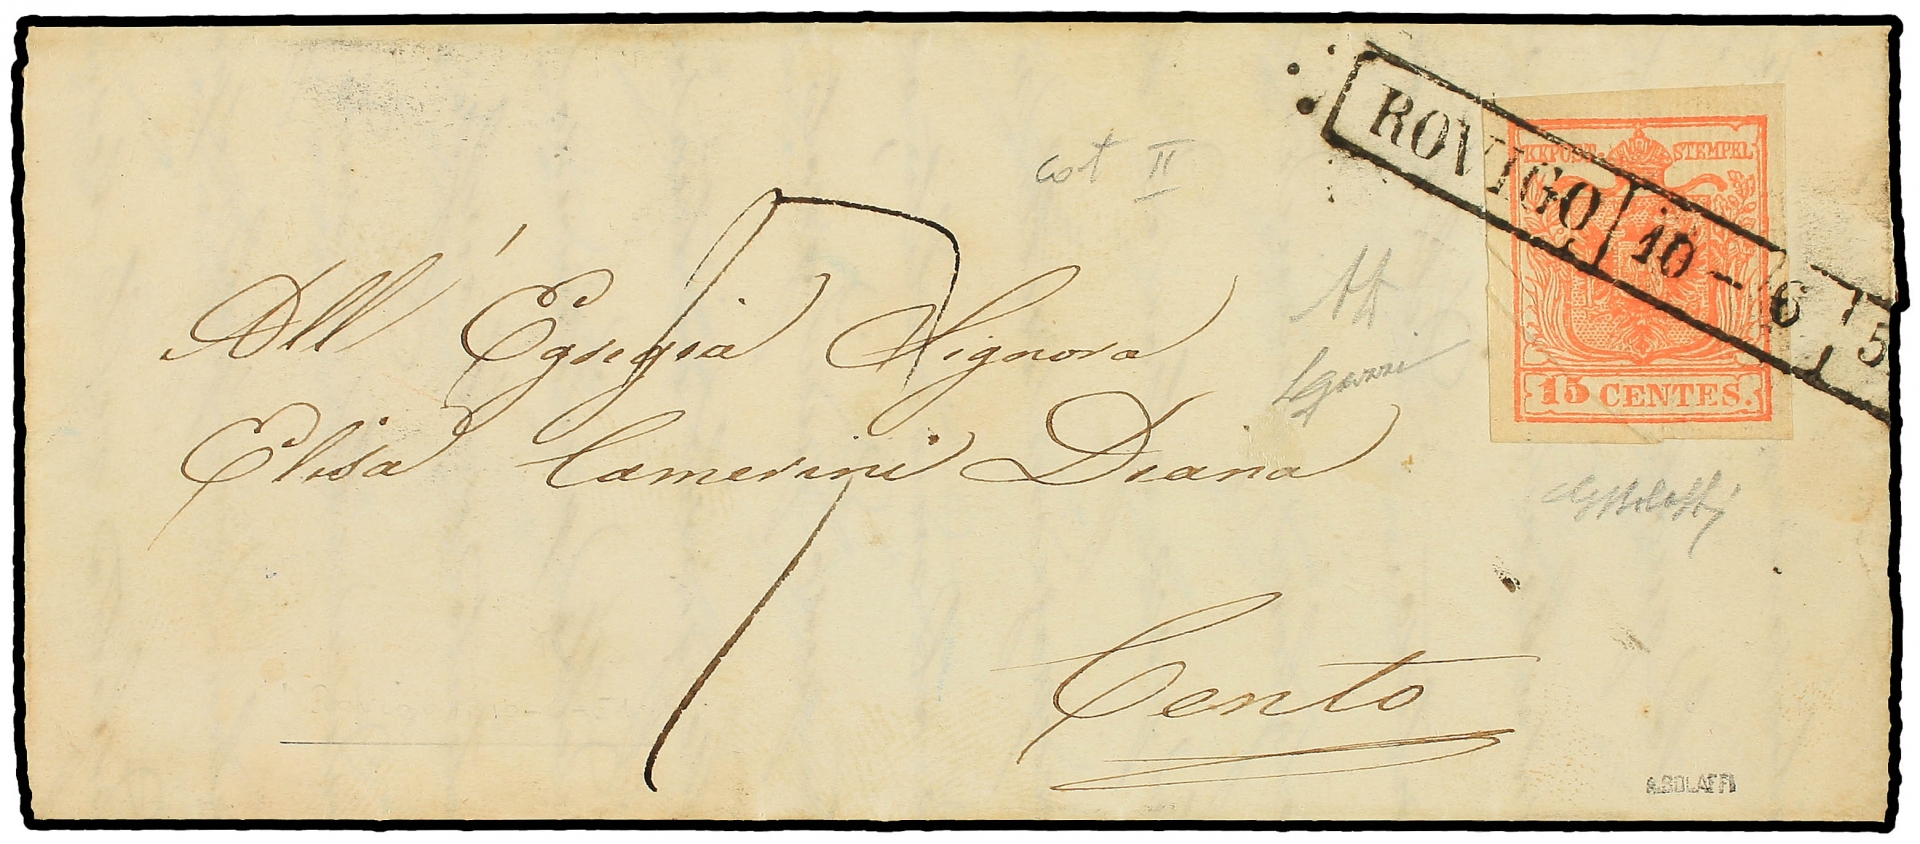 ROVIGO 10 - 6 5
KKPOST- STEMPEL
15 CENTES.
cot II
All' Egregia Signora
Elisa Camerini Diana
7
Cento
A.BOLAFFI